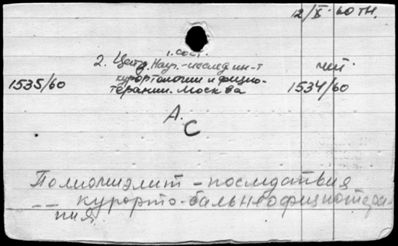 12/X-60 тн.
1. сост.
2. Центр. Науч.-исслед ин-т
курортологии и физио-
терапии. Москва
1535/60
1534/60
А.
С
Полиомиэлит - последствия
-- - курорто-бальнеофизиотера-
пия